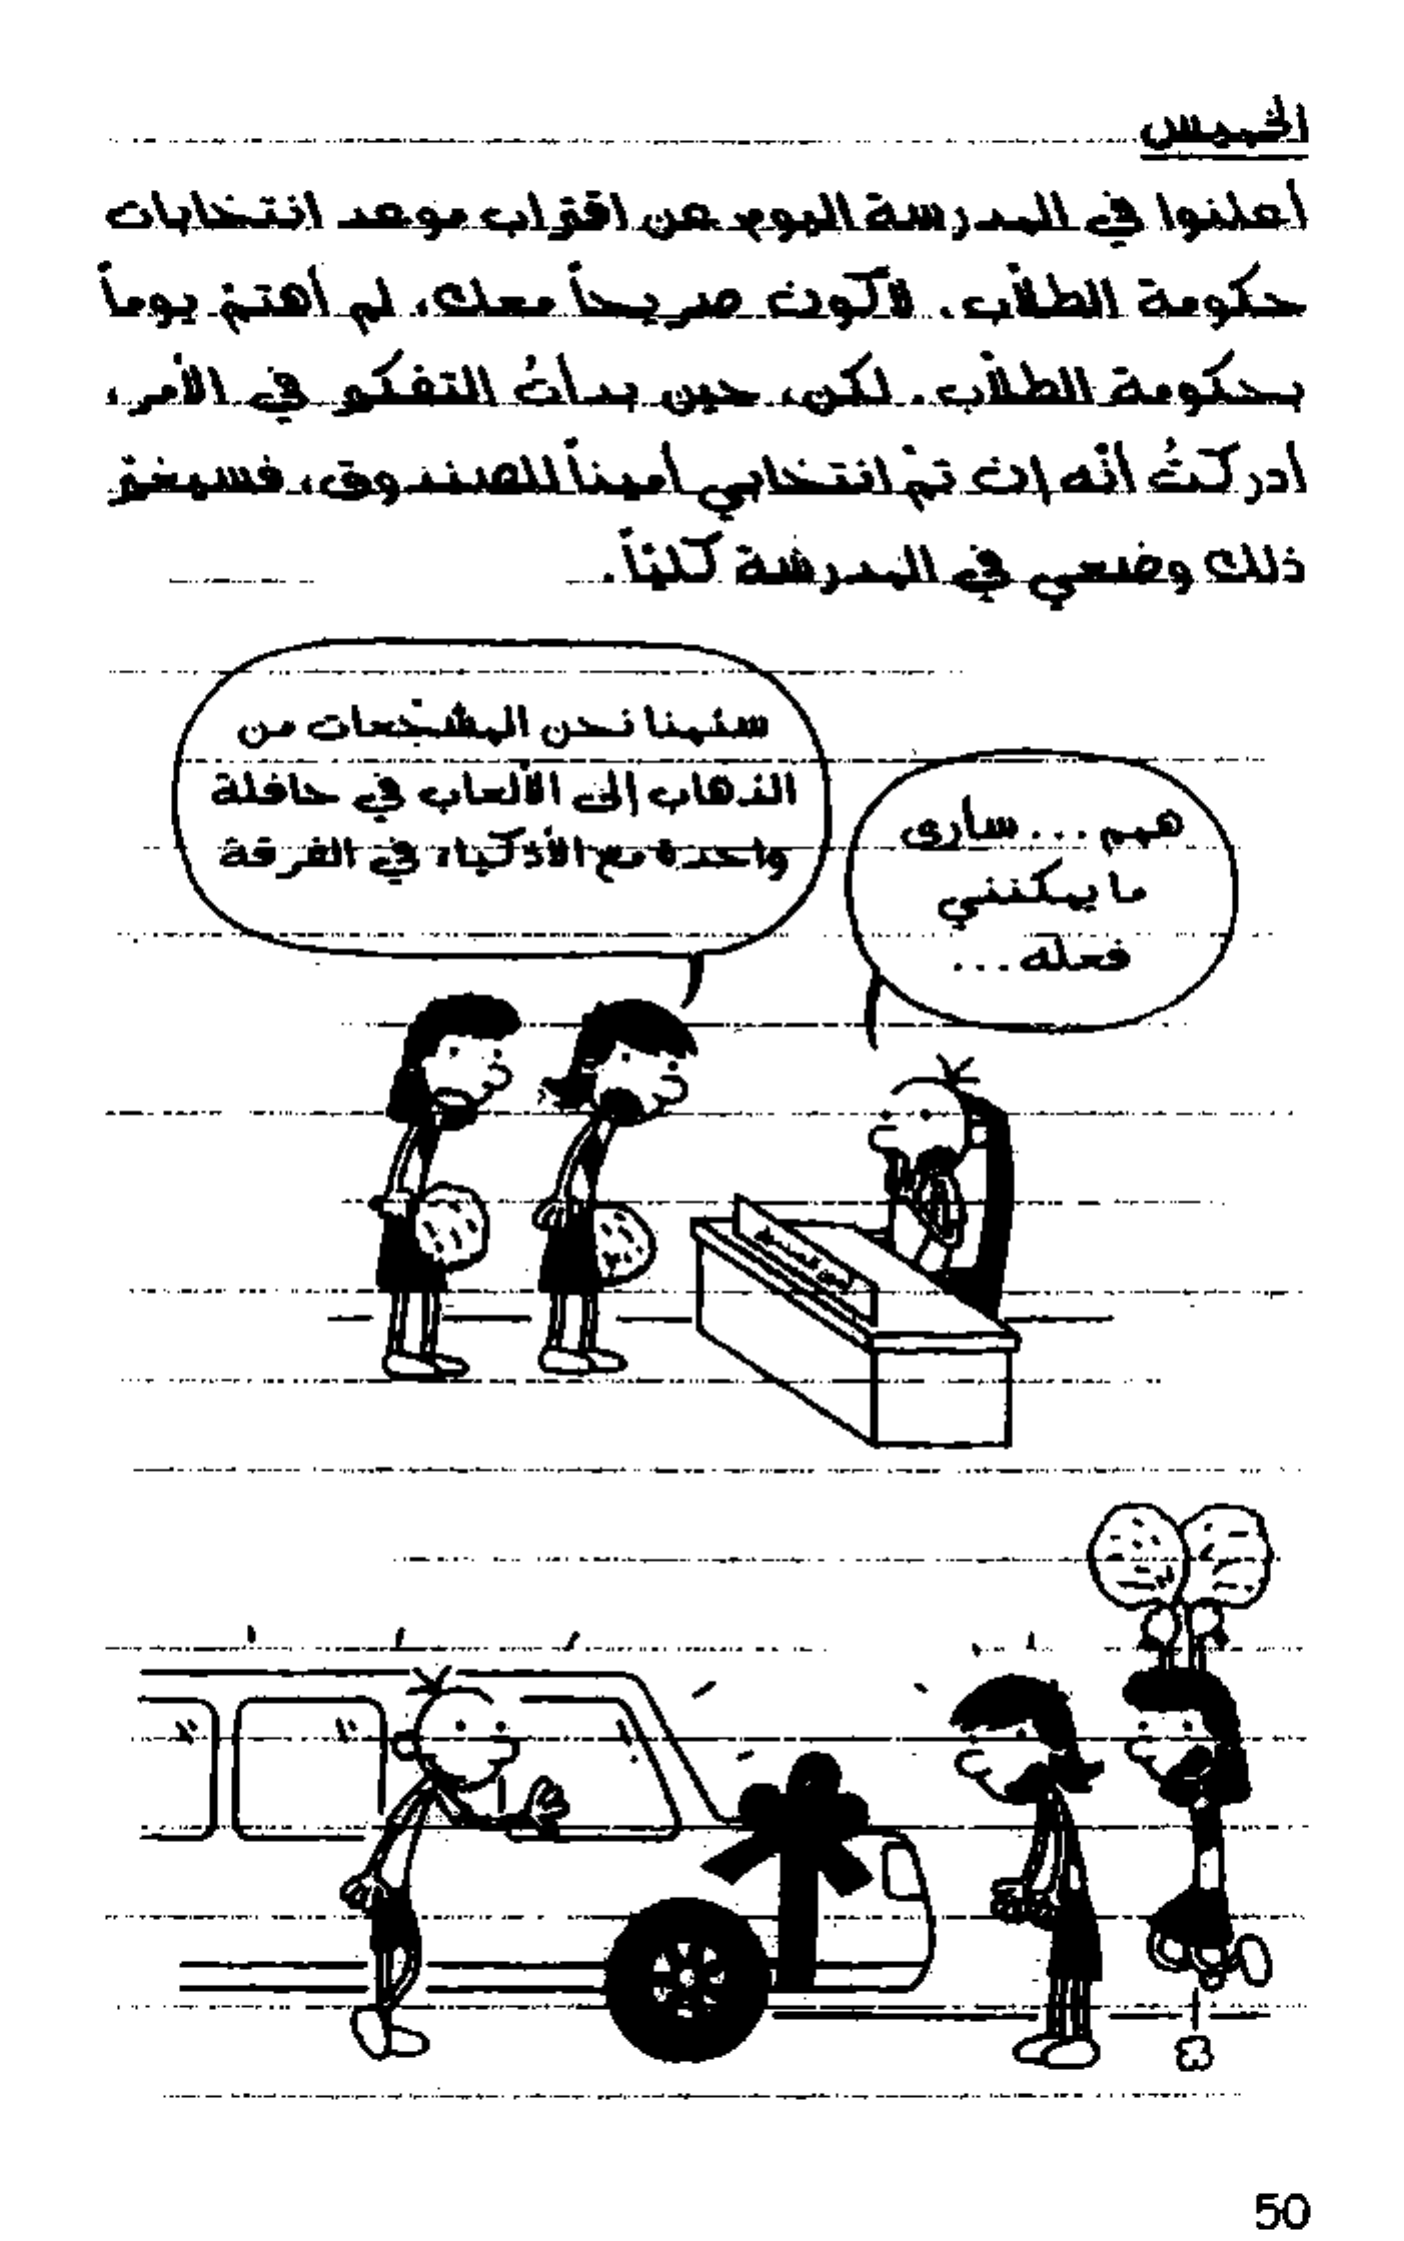 الخميس
أعلنوا في المدرسة اليوم عن اقتراب موعد انتخابات
حكومة الطلاّب. لأكون صريحاً معك، لم أهتمّ يوماً
بحكومة الطلاّب. لكن، حين بدأتُ التفكير في الأمر،
أدركتُ أنّه إن تمّ انتخابي أميناً للصندوق، فسيغيّر
ذلك وضعي في المدرسة كليّاً.
سئمنا نحن المشجّعات من
الذهاب إلى الألعاب في حافلة
واحدة مع الأذكياء في الفرقة
همم... سأرى
ما يمكنني
فعله...
أمين الصندوق
50